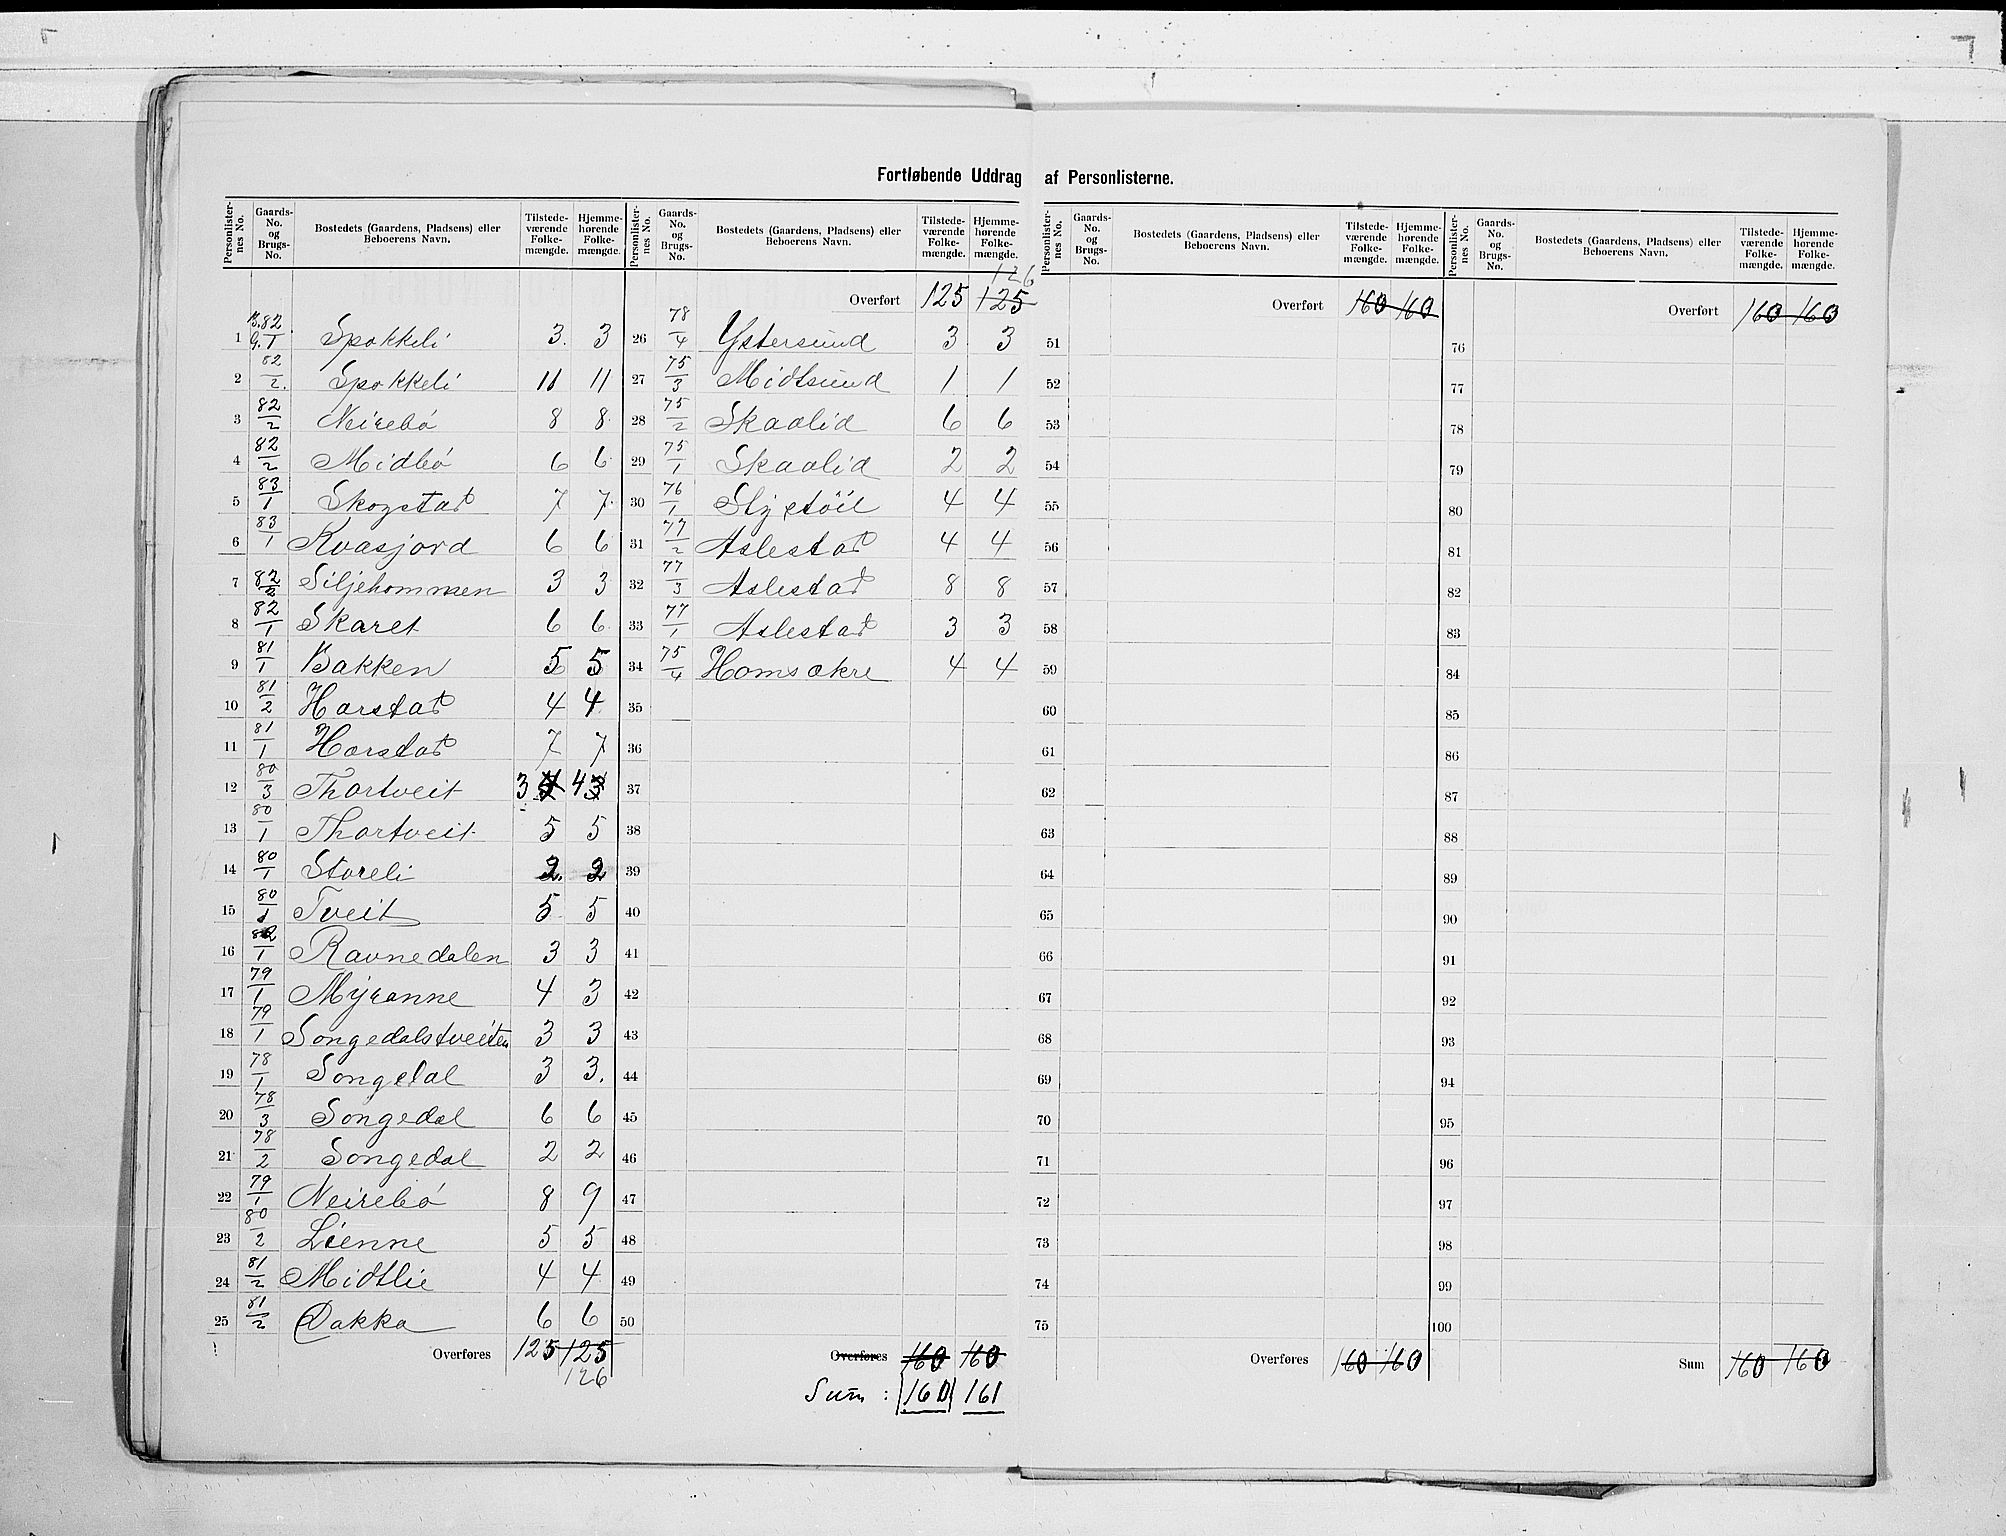 Fortløbende Uddrag af Personlisterne.
Personlister-nes No. Gaards-No. og Brugs-No. Bostedets (Gaardens, Pladsens) eller Beboerens Navn. Tilstede-værende Folke-mængde. Hjemme-hørende Folke-mængde. Personlister-nes No. Gaards-No. og Brugs-No. Bostedets (Gaardens, Pladsens) eller Beboerens Navn. Tilstede-værende Folke-mængde. Hjemme-hørende Folke-mængde. Personlister-nes No. Gaards-No. og Brugs-No. Bostedets (Gaardens, Pladsens) eller Beboerens Navn. Tilstede-værende Folke-mængde. Hjemme-hørende Folke-mængde. Personlister-nes No. Gaards-No. og Brugs-No. Bostedets (Gaardens, Pladsens) eller Beboerens Navn. Tilstede-værende Folke-mængde. Hjemme-hørende Folke-mængde.
126
Overført 125 125 Overført 160 160 Overført 160 160
1 B. 82 G. 1 Spokkeli 3. 3 26 78/4 Ystersund 3 3 51 76
2 82/2. Spokkeli 11 11 27 75/3 Midtsund 1 1 52 77
3 82/2 Neirebö 8 8 28 75/2 Skaalid 6 6 53 78
4 82/2 Midbö 6 6 29 75/1 Skaalid 2 2 54 79
5 83/1 Skogstad 7 7 30 76/1 4 4 55 80
6 83/1 Kvasjord 6 6 31 77/2 Aslestad 4 4 56 81
7 82/2 Siljehommen 3 3 32 77/3 Aslestad 8 8 57 82
8 82/1 Skaret 6 6 33 77/1 Aslestad 3 3 58 83
9 81/1 Bakken 5 5 34 75/4 Homsakre 4 4 59 84
10 81/2 Harstad 4 4 35 60 85
11 81/1 Harstad 7 7 36 61 86
12 80/3 Thortveit 3 4 37 62 87
13 80/1 Thortveit 5 5 38 63 88
14 80/1 Storeli 2. 2 39 64 89
15 80/1 Tveit 5 5 40 65 90
16 82/1 Ravnedalen 3 3 41 66 91
17 79/1 Myranne 4 3 42 67 92
18 79/1 Songedalstveiten 3 3 43 68 93
19 78/1 Songedal 3 3. 44 69 94
20 78/3 Songedal 6 6 45 70 95
21 78/2 Songedal 2 2 46 71 96
22 79/1 Neirebö 8 9 47 72 97
23 80/2 Lienne 5 5 48 73 98
24 81/2 Midtlie 4 4 49 74 99
25 81/2 Dakka 6 6 50 75 100
Overføres 125 125 Overføres 160 160 Overføres 160 160 Sum 160 160
126
Sum : 160 161